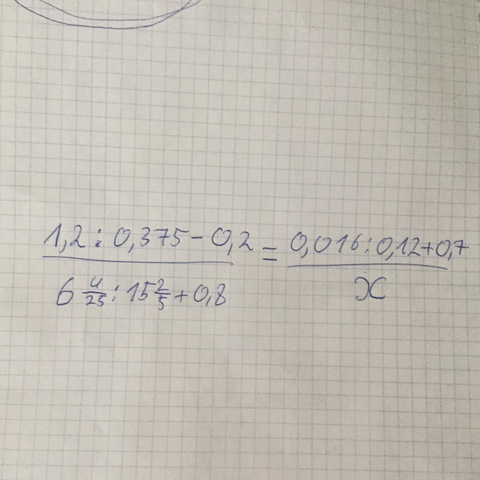 1,2 : 0,375 - 0,2 = 0,016 : 0,12 + 0,7
6 4/25 : 15 2/5 + 0,8 x